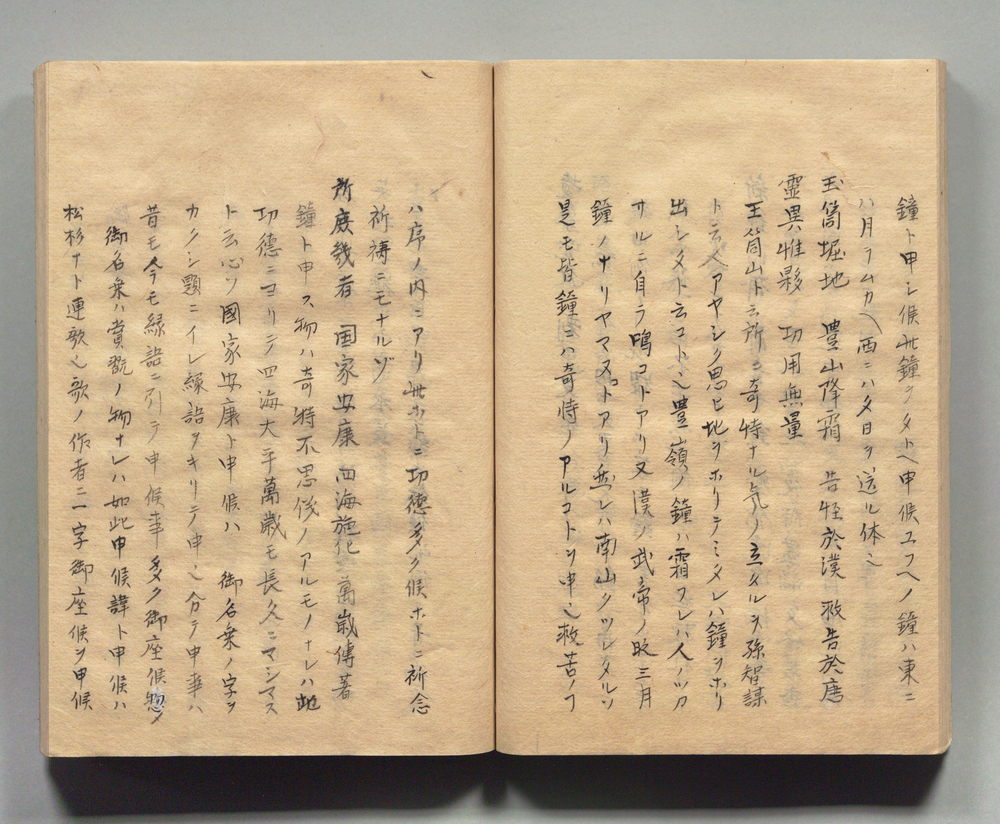 鐘ト申シ候此鐘ヲタトヘ申候エコヘノ鐘ハ東ニ
ハ月ヲムカヘ西ニハ夕日ヲ送ル体也
玉筒堀地 豊山降霜 告怪於漢 救告於唐
霊異惟夥 功用無量
玉筒山ト云所ニ奇特ナル気ノ立タルヲ孫智謀
ト云人アヤシク思ヒ地ヲホリテミタレハ鐘ヲホリ
出シタト云コト也豊嶺ノ鐘ハ霜フレハ人ノツカ
サルニ自ラ鳴コトアリ又漢ノ武帝ノ時三月
鐘ノナリヤマヌコトアリ無レハ南山クツレタルソ
是モ皆鐘ニハ奇特ノアルコトヲ申也救苦ノコ
ハ序ノ内ニアリ此ホトニ功徳多ク候ホトニ祈念
祈祷ニモナルゾ
所庶幾者 国家安廉 四海施化 萬歳傳芳
鐘ト申ス物ハ奇特不思儀ノアルモノナレハ此
功徳ニヨリテ四海大平萬歳モ長久ニマシマス
ト云心ソ國家安康ト申候ハ 御名乗ノ字ヲ
カクシ題ニイレ縁語ヲキリテ申也分テ申事ハ
昔モ今モ縁語ニ引テ申候事多ク御座候惣ノ
御名乗ハ賞翫ノ物ナレハ如此申候諱ト申候ハ
松杉ナト連歌也歌ノ作者ニ一字御座候ヲ申候